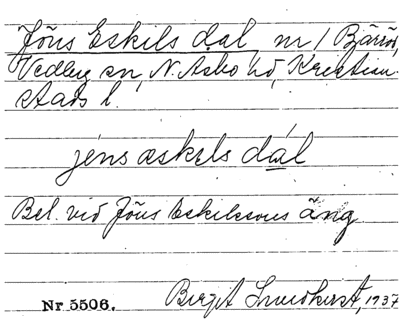 Jöns Eskils dal, nr 1 Bärröd,
Vedby sn, N. Åsbo hd, Kristian-
stads l.
jèns æskəls dál
Bel. vid Jöns Eskilssons äng
Birgit Lundkvist, 1937
Nr 5506.